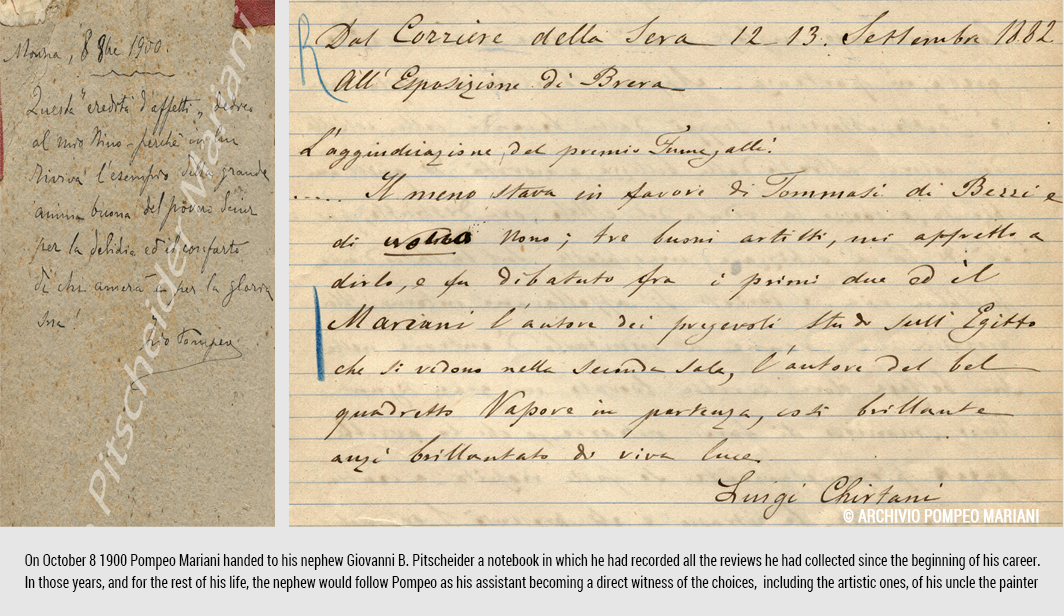 Monza, 8 9bre 1900.
Questa "eredità d'affetti„ dedico
al mio Nino - perchè in lui
Riviva l'esempio della grande
anima buona del povero
per la delizia ed il conforto
di chi amerà per la gloria
sua!
zio Pompeo
Pitscheider Mariani
Dal Corriere della Sera 12-13. Settembre 1882
All'Esposizione di Brera
L'aggiudicazione del premio Fumagalli.
..... Il meno stava in favore di Tommasi di Bezzi e
di Nono; tre buoni artisti, mi affretto a
dirlo, e fu dibatuto fra i primi due ed il
Mariani l'autore dei pregevoli studi sull'Egitto
che si vedono nella seconda sala, l'autore del bel
quadretto Vapore in partenza, così brillante
anzi brillantato di viva luce.
Luigi Chirtani
© ARCHIVIO POMPEO MARIANI
On October 8 1900 Pompeo Mariani handed to his nephew Giovanni B. Pitscheider a notebook in which he had recorded all the reviews he had collected since the beginning of his career.
In those years, and for the rest of his life, the nephew would follow Pompeo as his assistant becoming a direct witness of the choices, including the artistic ones, of his uncle the painter